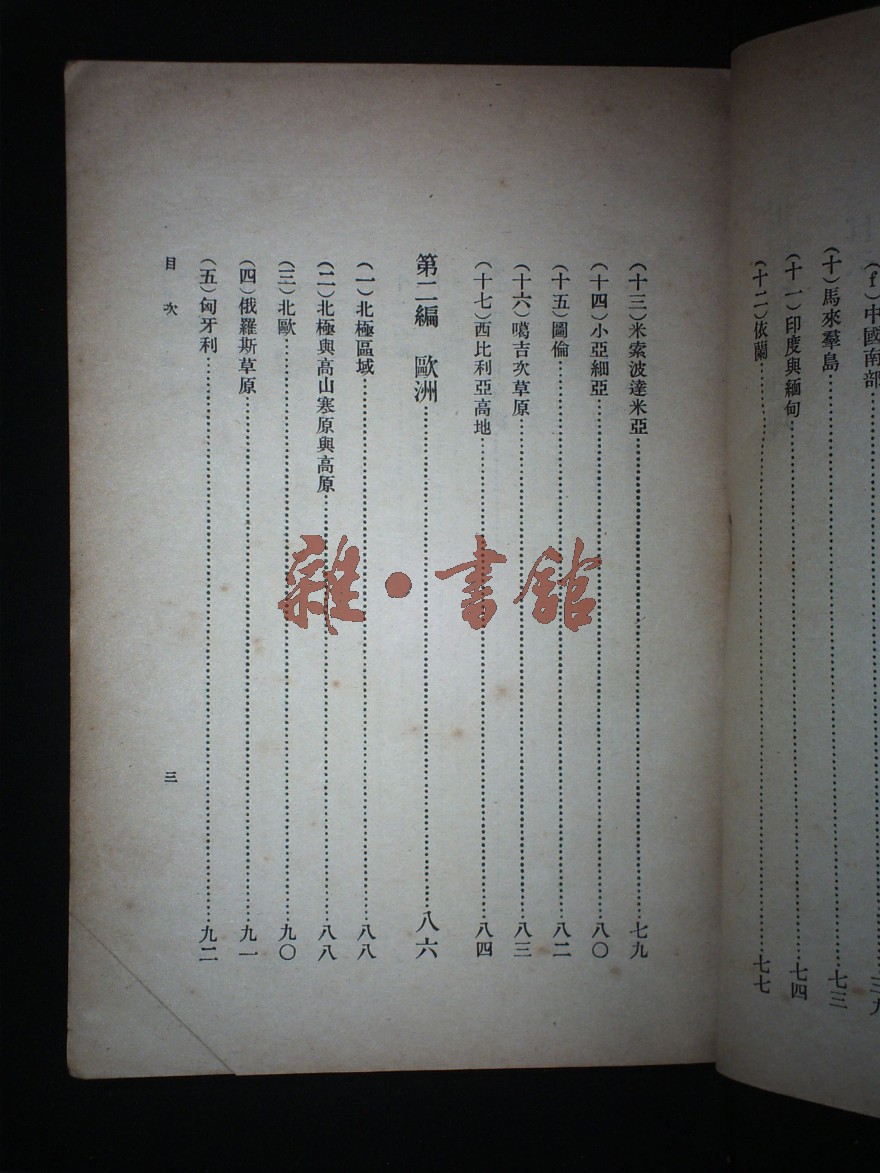 (f)中國南部………三九
(十)馬來羣島………七三
(十一)印度與緬甸………七四
(十二)依蘭………七七
(十三)米索波達米亞………七九
(十四)小亞細亞………八〇
(十五)圖倫………八二
(十六)噶吉次草原………八三
(十七)西比利亞高地………八四
第二編　歐洲………八六
(一)北極區域………八八
(二)北極與高山寒原與高原………八八
(三)北歐………九〇
(四)俄羅斯草原………九一
(五)匈牙利………九二
目次　三
雜·書館